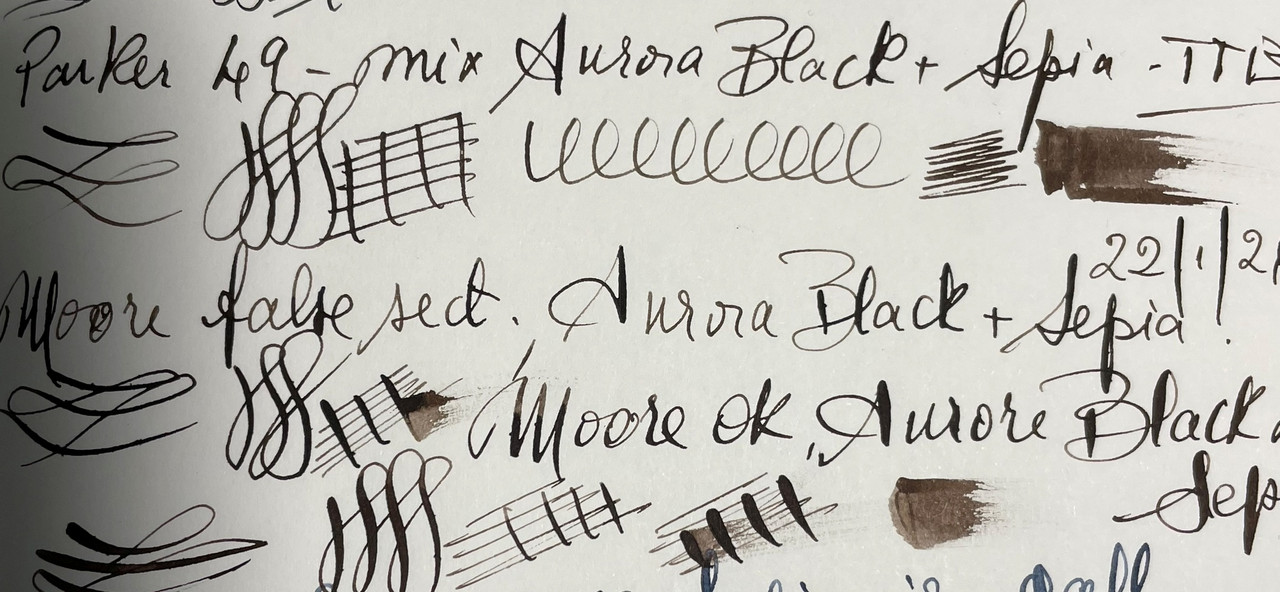 Parker 49 - mix Aurora Black + Sepia - TTB
22/1/21
Moore false sect. Aurora Black + Sepia!
Moore ok, Aurore Black
Sep